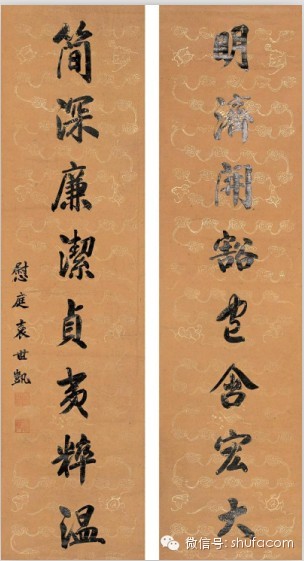 明濟開豁包含宏大
簡深廉潔貞夷粹温
慰庭袁世凱
微信号: shufacom